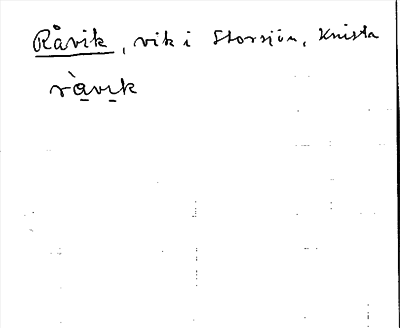 Råvik, vik i Storsjön, Knista
ràvik